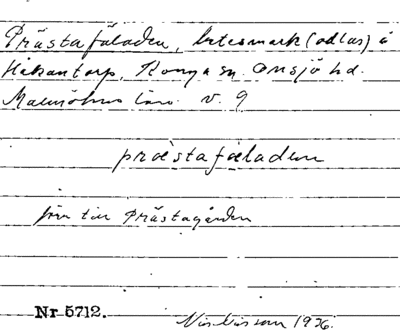 Prästafäladen, betesmark (odlas) å
Håkantorp, Konga sn. Onsjö hd.
Malmöhus län. v. 9
præstafæladen
förr till Prästagården
Nr 5712.
1926.